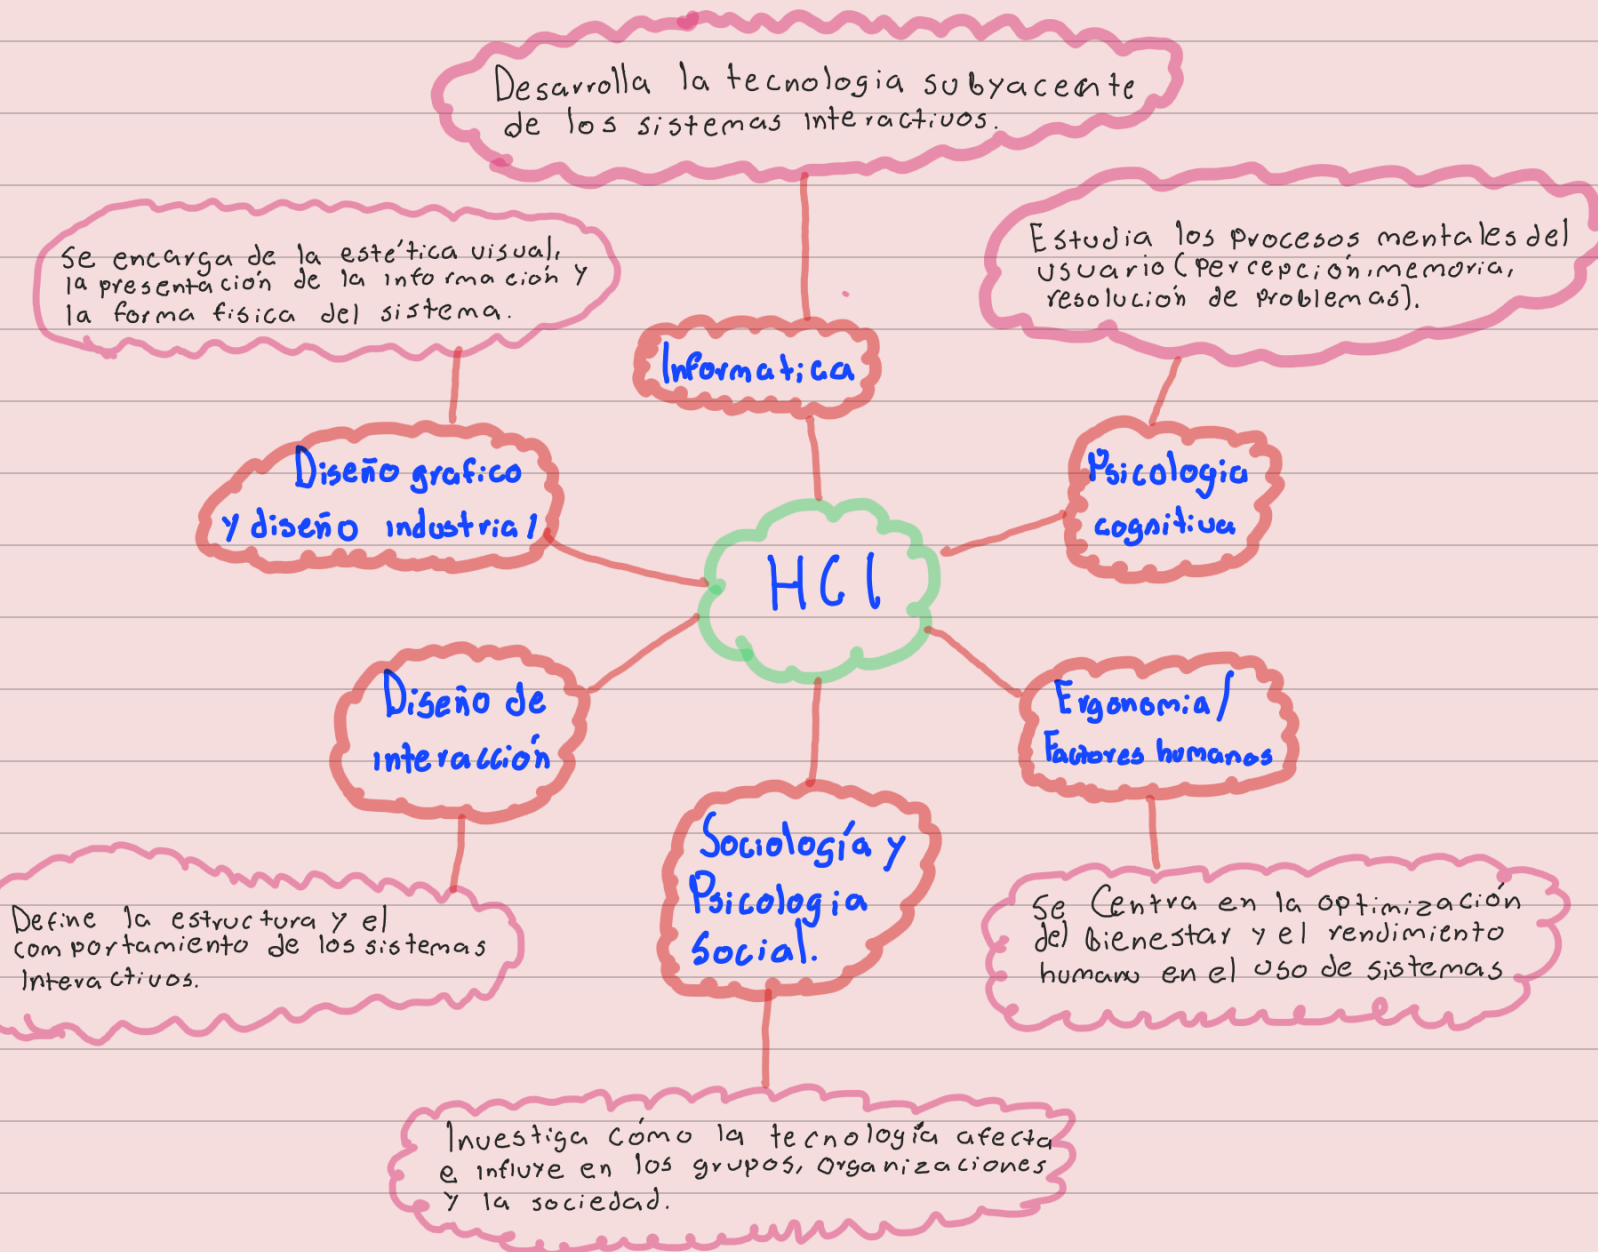 Desarrolla la tecnologia subyacente
de los sistemas interactivos.
Se encarga de la estética visual,
la presentación de la información y
la forma fisica del sistema.
Estudia los procesos mentales del
usuario (percepción, memoria,
resolución de problemas).
Informatica
Diseño grafico
y diseño industrial
Psicologia
cognitiva
HCI
Diseño de
interacción
Ergonomia/
Factores humanos
Sociología y
Psicologia
Social.
Define la estructura y el
comportamiento de los sistemas
Interactivos.
Se Centra en la optimización
del bienestar y el rendimiento
humano en el uso de sistemas
Investiga cómo la tecnología afecta
e influye en los grupos, organizaciones
y la sociedad.